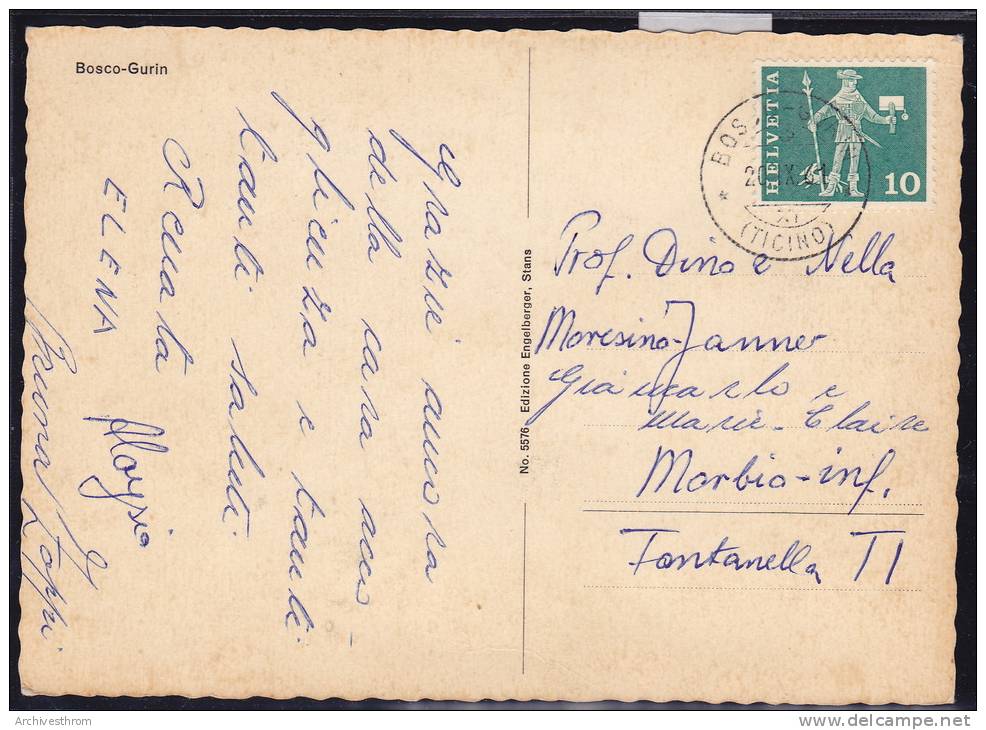 Bosco-Gurin
Grazie ancora
della cara acco-
glienza e tanti
tanti saluti.
Renata
ELENA
Aloysia
No. 5576 Edizione Engelberger, Stans
HELVETIA
10
BOS
20. IX. 61
(TICINO)
Prof. Dino e Nella
Moresino-Janner
Giancarlo e
Marie-Claire
Morbio-inf.
Fontanella TI
Archivesthrom
www.delcampe.net